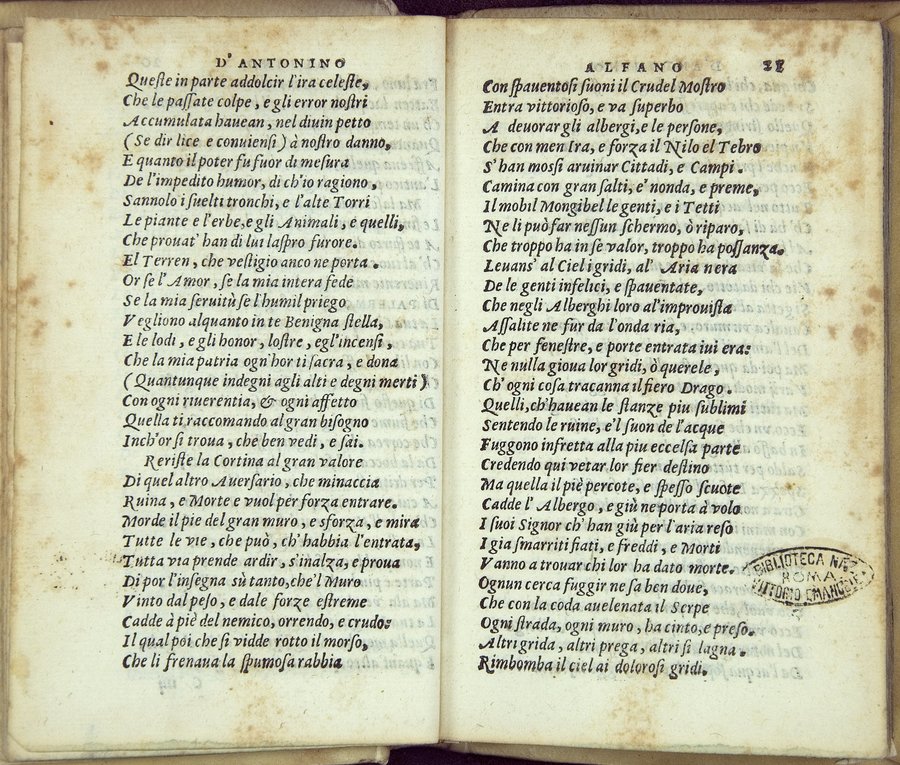 D'ANTONINO
Queſte in parte addolcir l'ira celeſte,
Che le paſſate colpe, e gli error noſtri
Accumulata hauean, nel diuin petto
(Se dir lice e conuienſi) à noſtro danno,
E quanto il poter fu fuor di meſura
De l'impedito humor, di ch'io ragiono,
Sannolo i ſuelti tronchi, e l'alte Torri
Le piante e l'erbe, e gli Animali, e quelli,
Che prouat' han di lui laſpro furore.
El Terren, che veſtigio anco ne porta.
Or ſe l'Amor, ſe la mia intera fede
Se la mia ſeruitù ſe l'humil priego
Vegliono alquanto in te Benigna ſtella,
E le lodi, e gli honor, loſtre, egl'incenſi,
Che la mia patria ogn'hor ti ſacra, e dona
(Quantunque indegni agli alti e degni merti)
Con ogni riuerentia, & ogni affetto
Quella ti raccomando al gran biſogno
Inch'or ſi troua, che ben vedi, e ſai.
Reriſte la Cortina al gran valore
Di quel altro Auerſario, che minaccia
Ruina, e Morte e vuol per forza entrare.
Morde il pie del gran muro, e sforza, e mira
Tutte le vie, che può, ch'habbia l'entrata,
Tutta via prende ardir, s'inalza, e proua
Di por l'inſegna sù tanto, che'l Muro
Vinto dal peſo, e dale forze eſtreme
Cadde à piè del nemico, orrendo, e crudo:
Il qual poi che ſi vidde rotto il morſo,
Che li frenaua la ſpumoſa rabbia
ALFANO 28
Con ſpauentoſi ſuoni il Crudel Moſtro
Entra vittorioſo, e va ſuperbo
A deuorar gli albergi, e le perſone,
Che con men Ira, e forza il Nilo el Tebro
S'han moſſi aruinar Cittadi, e Campi.
Camina con gran ſalti, e'nonda, e preme,
Il mobil Mongibel le genti, e i Tetti
Ne li può far neſſun ſchermo, ò riparo,
Che troppo ha in ſe valor, troppo ha poſſanza.
Leuanſ' al Ciel i gridi, al' Aria nera
De le genti infelici, e ſpauentate,
Che negli Alberghi loro al'improuiſta
Aſſalite ne fur da l'onda ria,
Che per feneſtre, e porte entrata iui era:
Ne nulla gioua lor gridi, ò querele,
Ch'ogni coſa tracanna il fiero Drago.
Quelli, ch'hauean le ſtanze piu ſublimi
Sentendo le ruine, e'l ſuon de l'acque
Fuggono infretta alla piu eccelſa parte
Credendo qui vetar lor fier deſtino
Ma quella il piè percote, e ſpeſſo ſcuote
Cadde l'Albergo, e giù ne porta à volo
I ſuoi Signor ch'han giù per l'aria reſo
I gia ſmarriti fiati, e freddi, e Morti
Vanno a trouar chi lor ha dato morte.
Ognun cerca fuggir ne ſa ben doue,
Che con la coda auelenata il Serpe
Ogni ſtrada, ogni muro, ha cinto, e preſo.
Altri grida, altri prega, altri ſi lagna.
Rimbomba il ciel ai doloroſi gridi.
BIBLIOTECA NAZ
ROMA
VITTORIO EMANUELE